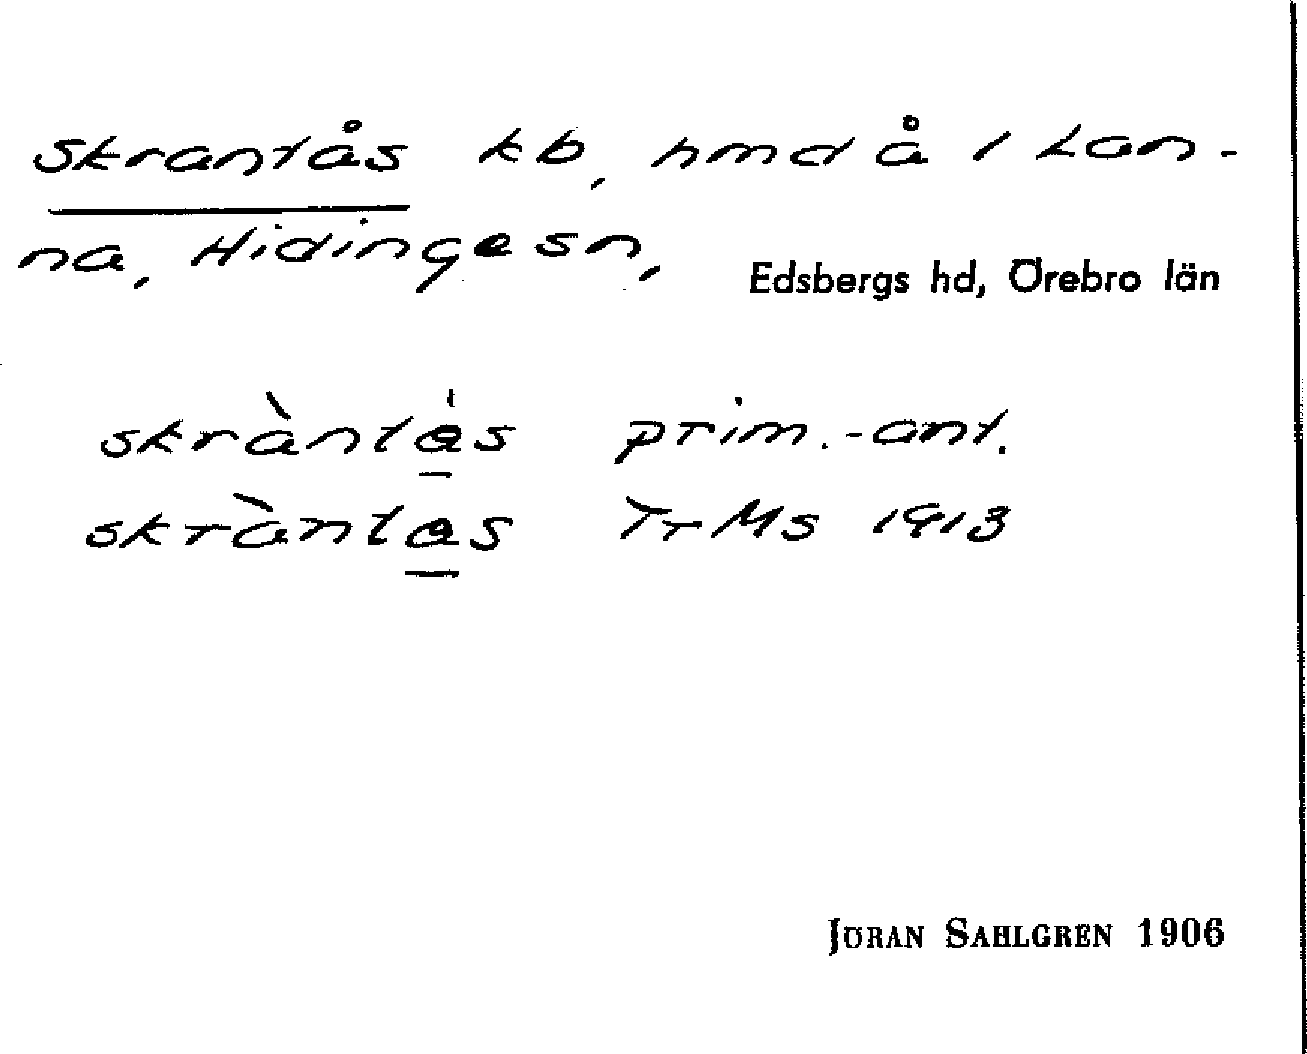 Skrantås kb, hmd å 1 Lan-
na, Hidinge sn, Edsbergs hd, Örebro län
skrànta̲̍s prim.-ant.
skrànta̲s TrMs 1913
JÖRAN SAHLGREN 1906